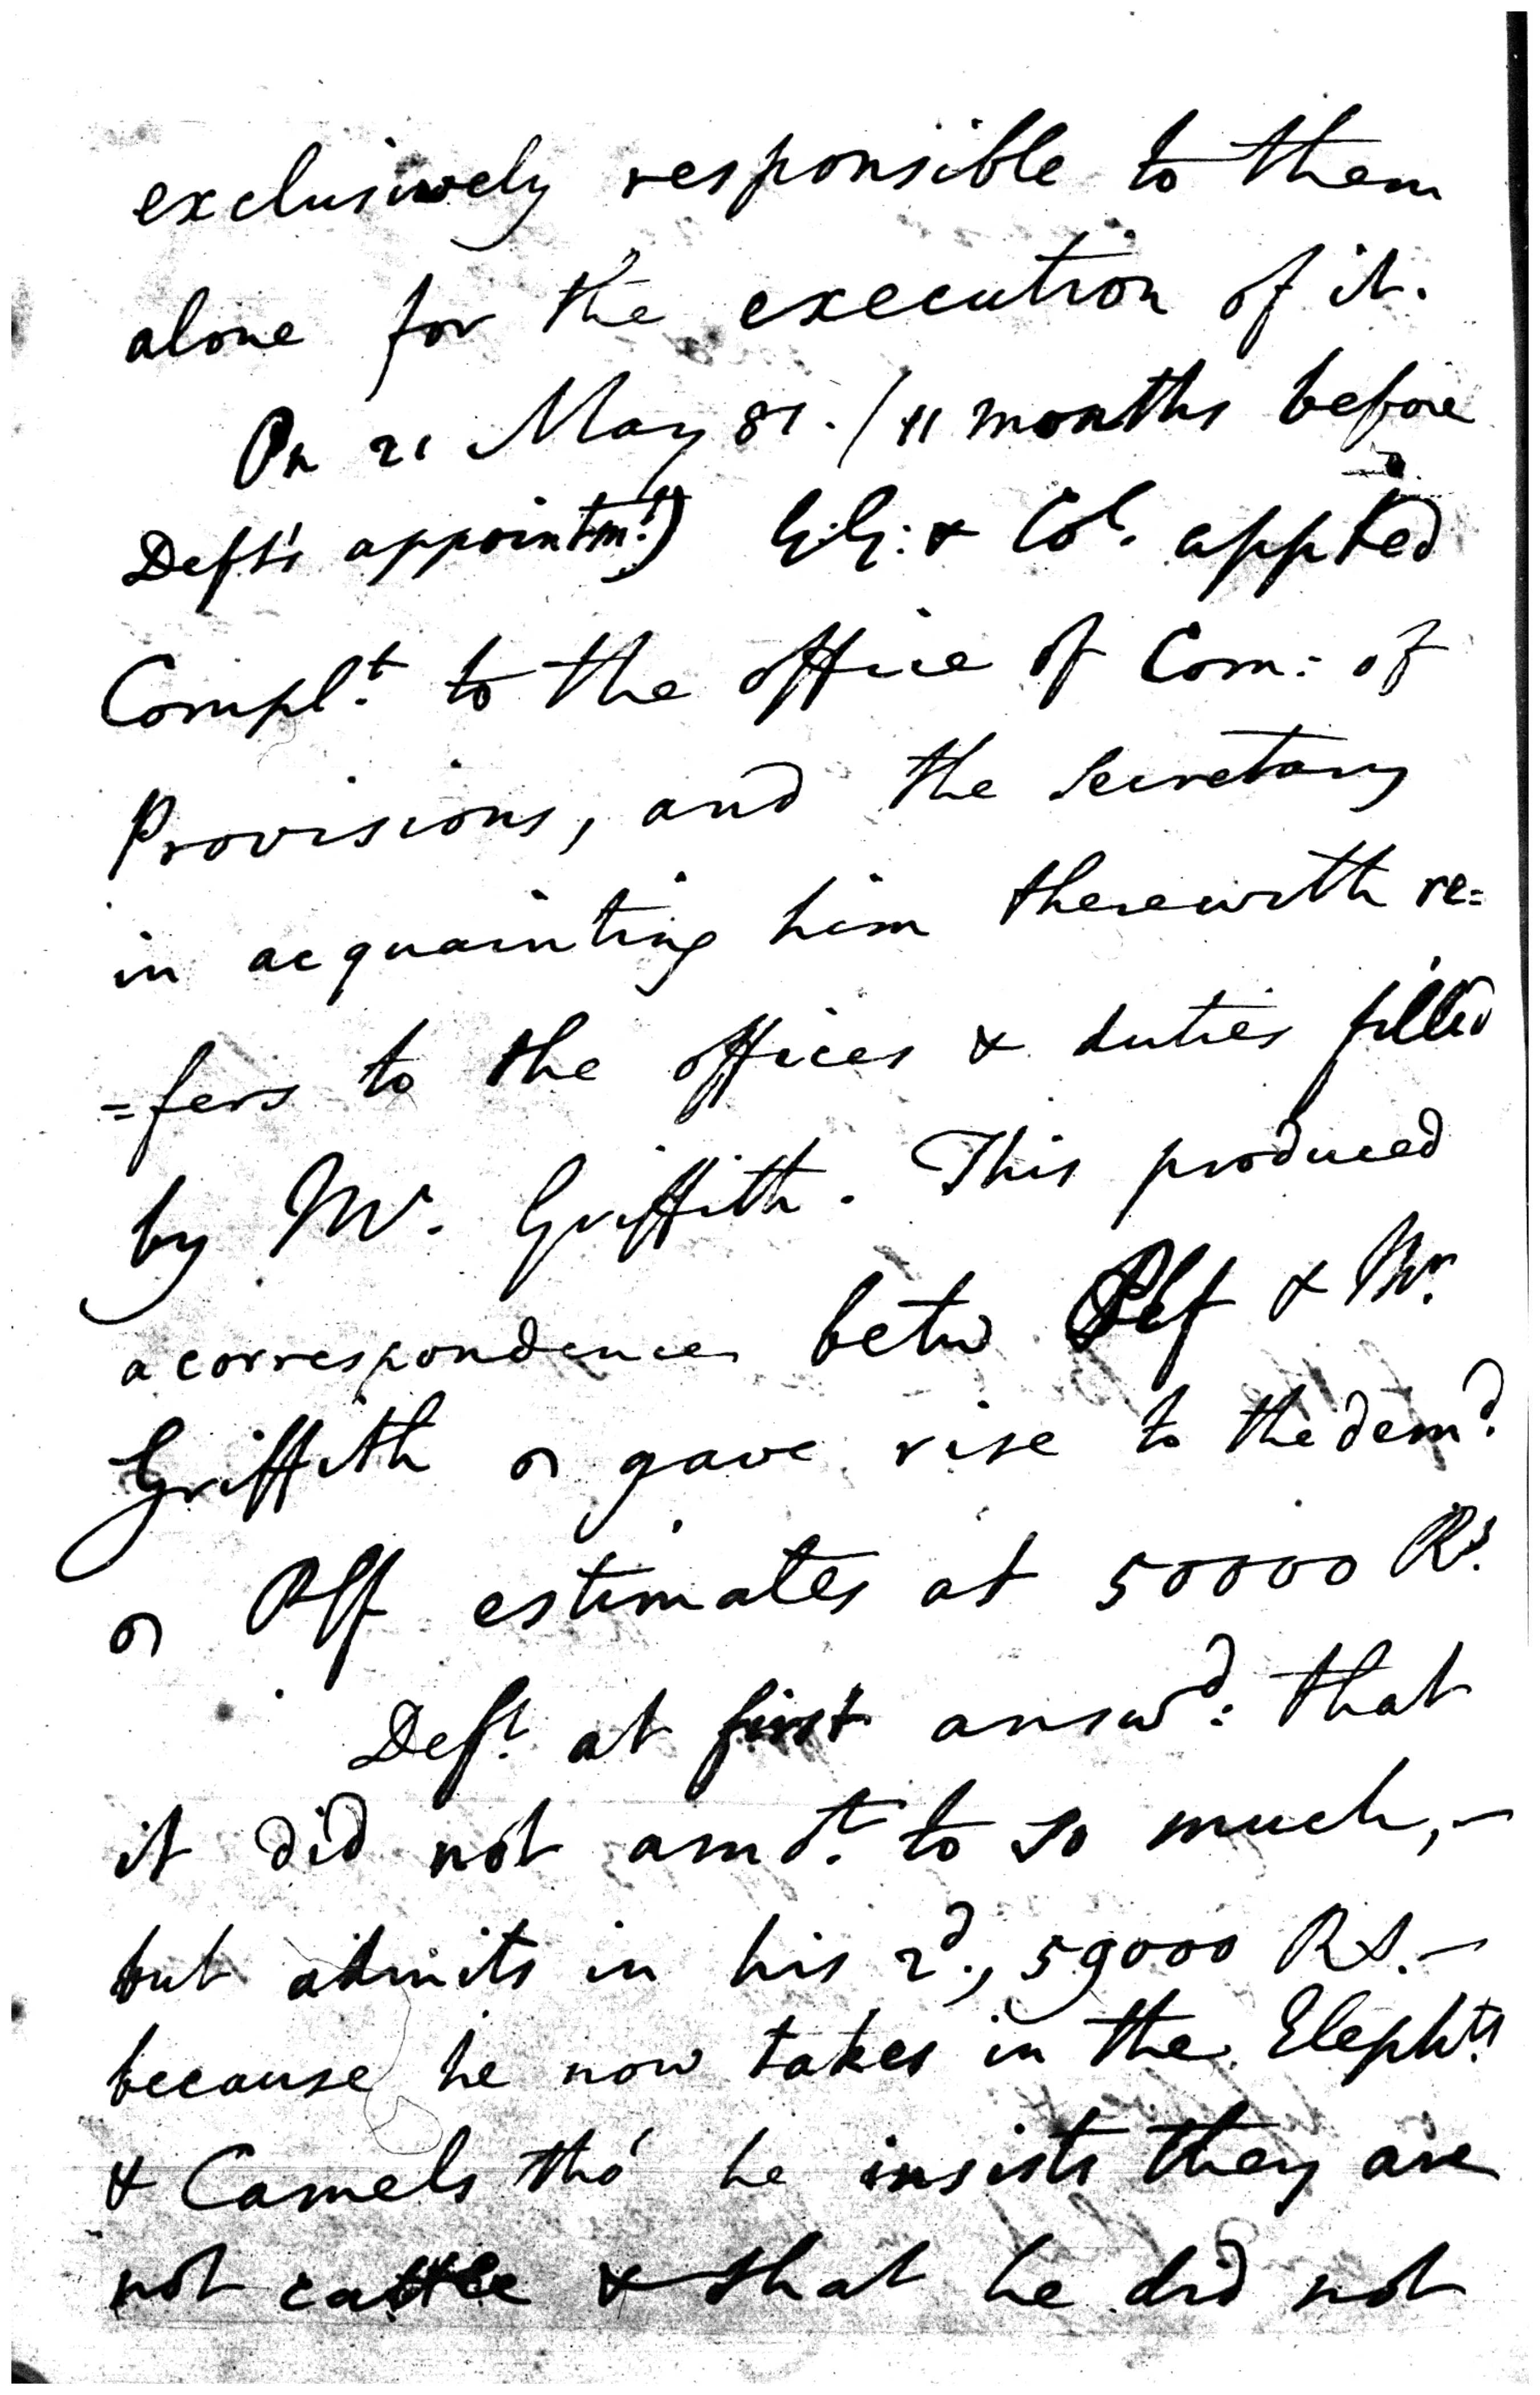 exclusively responsible to them
alone for the execution of it.
On 21 May 81. (11 months before
Deft's appointmt.) G.G: & Col. appted
Complt. to the office of Com: of
Provisions, and the Secretary
in acquainting him therewith re=
=fers to the offices & duties filled
by Mr. Griffith. This produced
a correspondence betw & Mr.
Griffith gave rise to the demd.
Plf estimates at 50000 Rs.
Deft. at first answd: that
it did not amot. to so much,-
but admits in his 2d., 59000 Rs.-
because he now takes in the Elephts.
& Camels tho' he insists they are
not cattle & that he did not